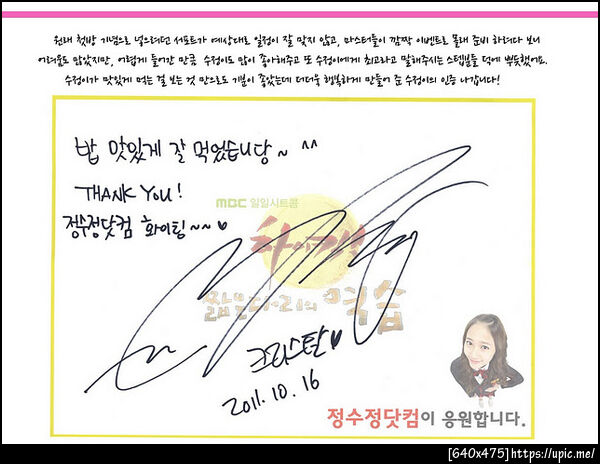 원래 첫방 기념으로 넣으려던 서포트가 예상대로 일정이 잘 맞지 않고, 마스터들이 깜짝 이벤트로 몰래 준비 하려다 보니
어려움도 많았지만, 어렵게 들어간 만큼 수정이도 많이 좋아해주고 또 수정이에게 최고라고 말해주시는 스텝분들 덕에 뿌듯했어요.
수정이가 맛있게 먹는 걸 보는 것 만으로도 기분이 좋았는데 더더욱 행복하게 만들어 준 수정이의 인증 나갑니다!
밥 맛있게 잘 먹었습니당~ ^^
THANK YOU!
정수정닷컴 화이팅~~♥
MBC 일일시트콤
하이킥!
짧은다리의 역습
크리스탈♥
2011.10.16
정수정닷컴이 응원합니다.
[640x475]https://upic.me/